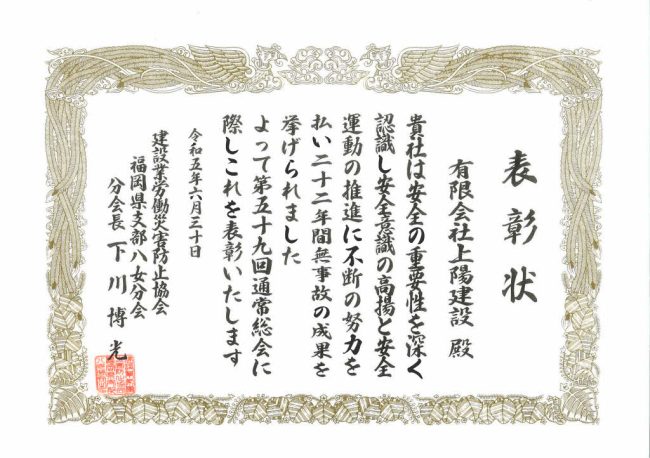 表彰状
有限会社上陽建設 殿
貴社は安全の重要性を深く
認識し安全意識の高揚と安全
運動の推進に不断の努力を
払い二十二年間無事故の成果を
挙げられました
よって第五十九回通常総会に
際しこれを表彰いたします
令和五年六月三十日
建設業労働災害防止協会
福岡県支部八女分会
分会長 下川博光